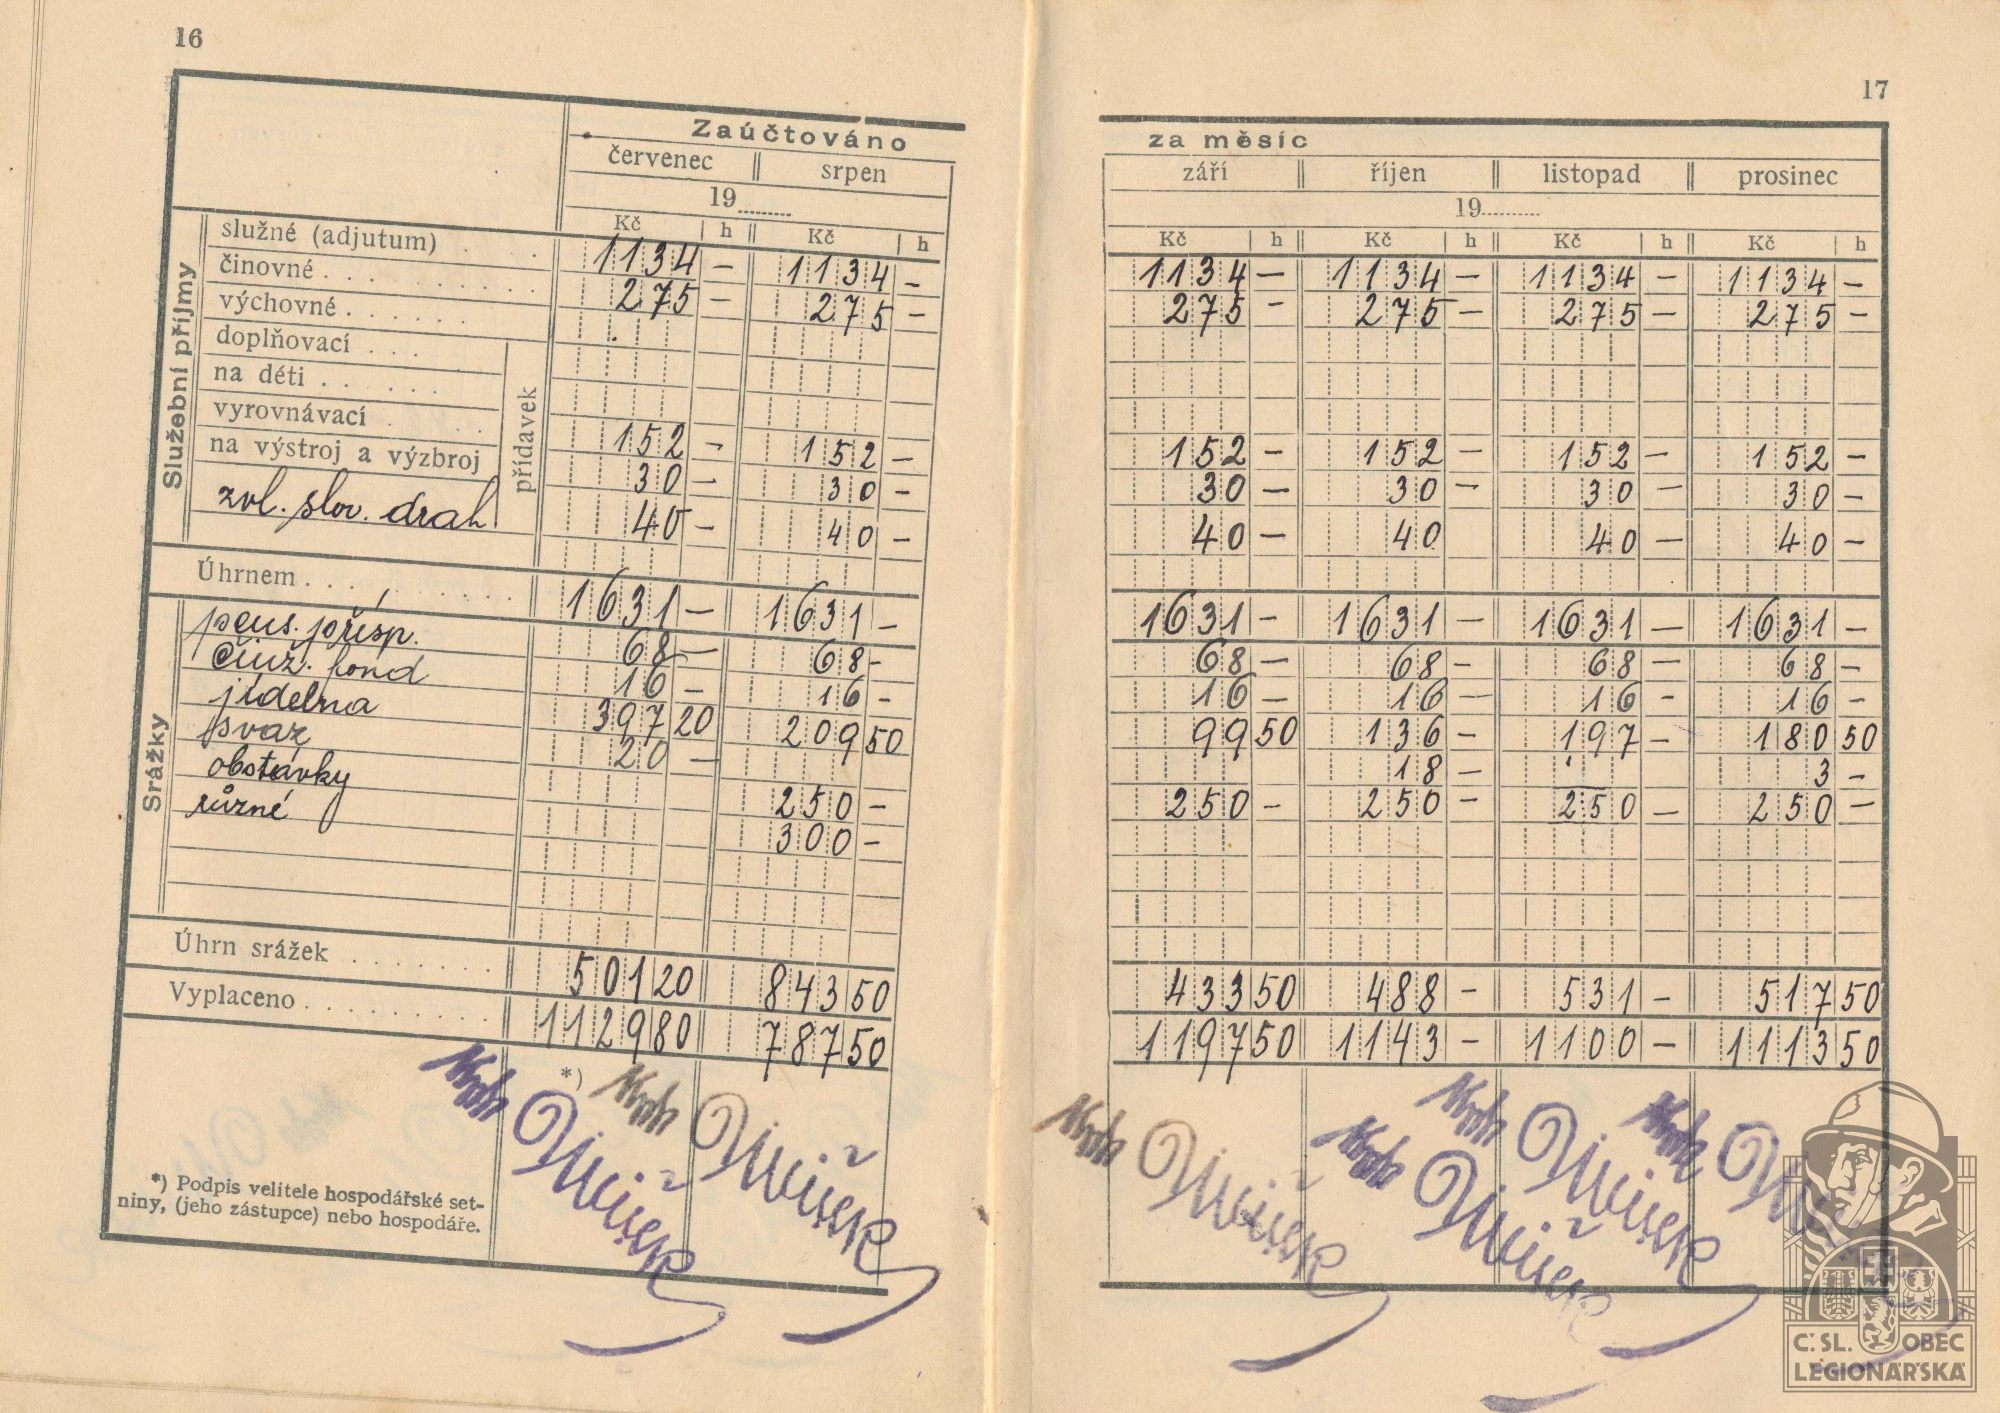 16
Zaúčtováno
červenec srpen
19
Kč h Kč h
Služební příjmy
služné (adjutum) 1134 — 1134 —
činovné 275 — 275 —
výchovné
doplňovací
na děti
vyrovnávací 152 — 152 —
na výstroj a výzbroj 30 — 30 —
přídavek
zvl. slov. drah. 40 — 40 —
Úhrnem 1631 — 1631 —
Srážky
pens. přísp. 68 — 68 —
činž. fond 16 — 16 —
jídelna 397 20 209 50
svaz 20 —
obstávky 250 —
různé 300 —
Úhrn srážek 501 20 843 50
Vyplaceno 1129 80 787 50
*)
*) Podpis velitele hospodářské set-
niny, (jeho zástupce) nebo hospodáře.
17
za měsíc
září říjen listopad prosinec
19
Kč h Kč h Kč h Kč h
1134 — 1134 — 1134 — 1134 —
275 — 275 — 275 — 275 —
152 — 152 — 152 — 152 —
30 — 30 — 30 — 30 —
40 — 40 40 — 40 —
1631 — 1631 — 1631 — 1631 —
68 — 68 — 68 — 68 —
16 — 16 — 16 — 16 —
99 50 136 — 197 — 180 50
18 — 3 —
250 — 250 — 250 — 250 —
433 50 488 — 531 — 517 50
1197 50 1143 — 1100 — 1113 50
Č.SL. OBEC
LEGIONÁŘSKÁ